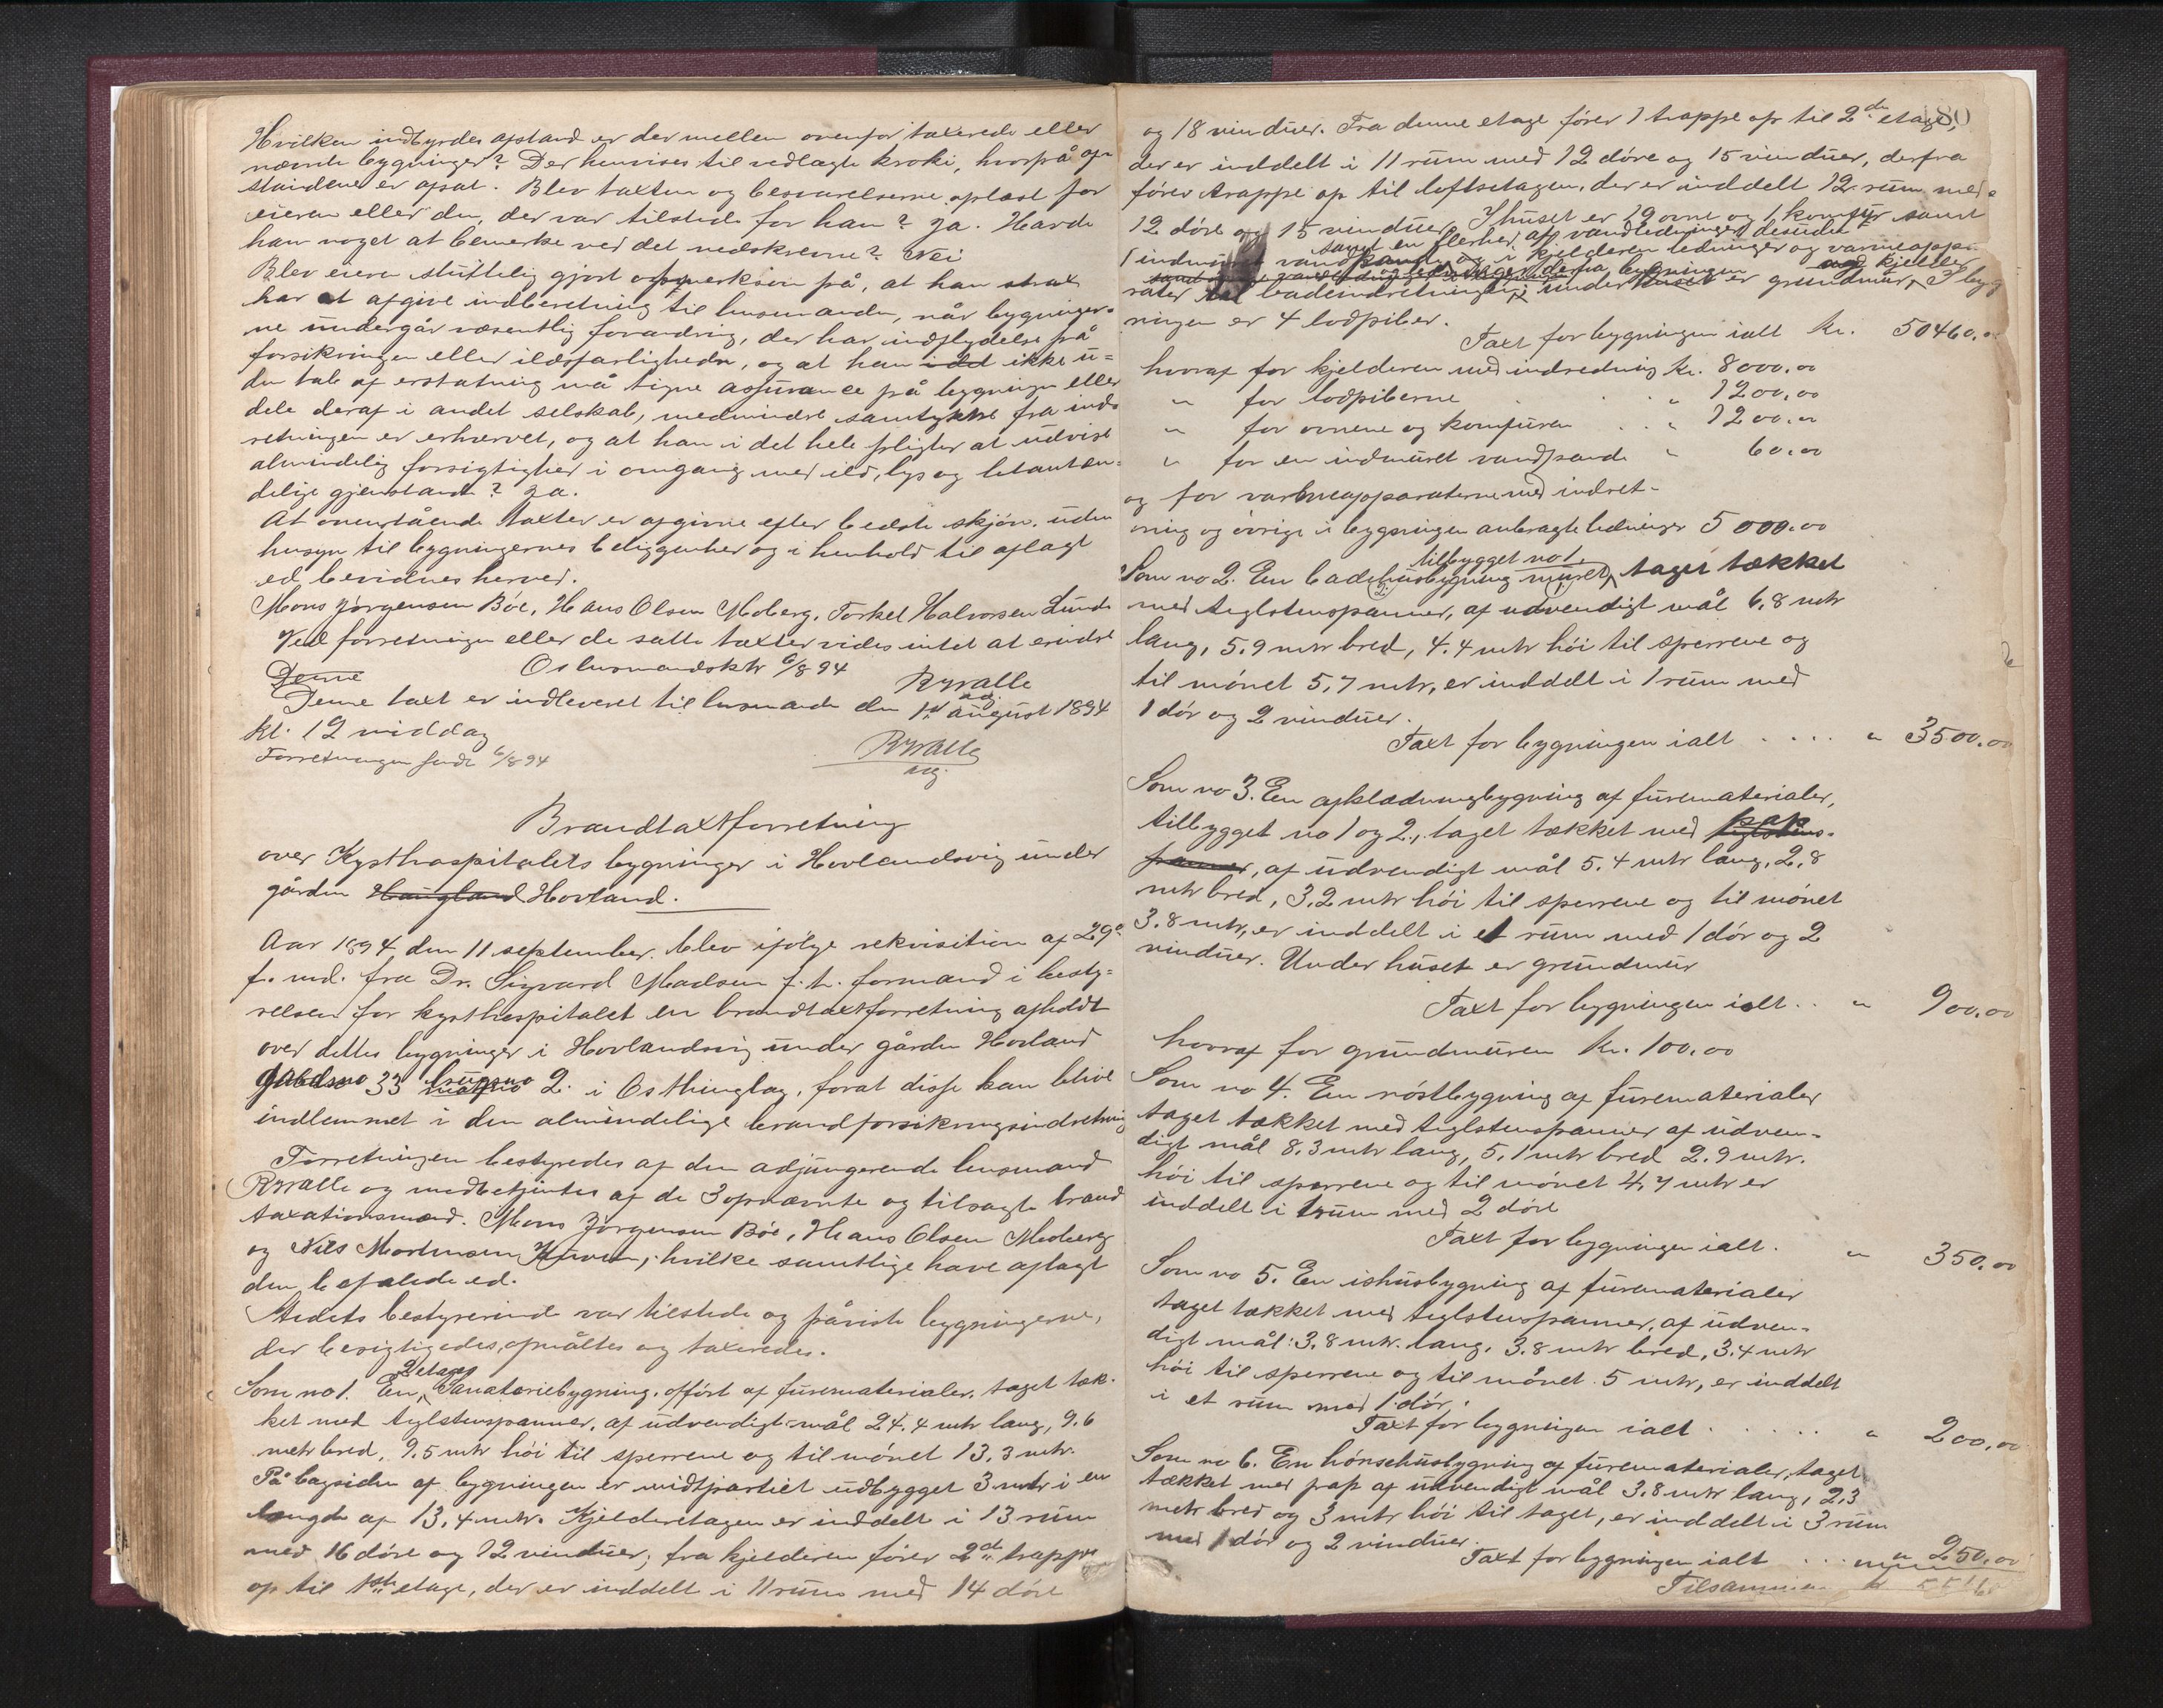 Hvilken indbyrdes afstand er der mellem ovenfor taxerede eller
nævnte bygninger? Der henvises til vedlagte kroki, hvorpå af-
standene er afsat. Blev taxten og besvarelserne oplæst for
eieren eller den, der var tilstede for ham? Ja. Havde
han noget at bemerke ved det nedskrevne? Nei
Blev eieren sluttelig gjort opmerksom på, at han strax
har at afgive indberetning til lensmanden, når bygninger-
ne undergår væsentlig forandring, der har indflydelse på
forsikringen eller ildsfarligheden, og at han ikke u-
den tab af erstatning må tegne assurance på bygningen eller
dele deraf i andet selskab, medmindre samtykke fra ind-
retningen er erhvervet, og at han i det hele pligter at udvise
almindelig forsigtighed i omgang med ild, lys og letantæn-
delige gjenstande? Ja.
At ovenstående taxter er afgivne efter bedste skjøn, uden
hensyn til bygningernes beliggenhed og i henhold til aflagt
ed bevidnes herved.
Mons Jørgensen Bøe, Hans Olsen Moberg, Torkel Halvorsen Lunde
Ved forretningen eller de satte taxter vides intet at erindre
Denne Os lensmandsktr 6/8 94
RWalle
adj.
Denne taxt er indleveret til lensmanden den 1st august 1894
kl. 12 middag
RWalle
adj.
Forretningen sendt 6/8 94
Brandtaxtforretning
over Kysthospitalets bygninger i Hovlandsvig under
gården Haugland Hovland.
Aar 1894 den 11 september blev ifølge rekvisition af 29de
f. md. fra Dr. Sigvard Madsen f. t. formand i besty-
relsen for kysthospitalet en brandtaxtforretning afholdt
over dettes bygninger i Hovlandsvig under gården Hovland
gardsno 33 brugsno 2 i Os thinglag, forat disse kan blive
indlemmet i den almindelige brandforsikringsindretning
Forretningen bestyredes af den adjungerende lensmand
RWalle og medbetjentes af de 3 opnævnte og tilsagte brand
taxationsmænd. Mons Jørgensen Bøe, Hans Olsen Moberg
og Nils Mortensen, hvilke samtlige have aflagt
den befalede ed.
Stedets bestyrerinde var tilstede og påviste bygningerne,
der besigtigedes, opmåltes og taxeredes.
Som no 1. En 2 etages Sanatoriebygning, opført af furematerialer, taget tæk-
ket med teglstenspanner, af udvendigt mål 24.4 mtr lang, 9.6
metr bred, 9.5 mtr høi til sperrene og til mønet 13,3 mtr.
På bagsiden af bygningen er midtpartiet udbygget 3 mtr i en
længde af 13,4 mtr. Kjelderetagen er inddelt i 13 rum
med 16 døre og 12 vinduer; fra kjelderen fører 2de trapper
op til 1ste etage, der er inddelt i 11 rum med 14 døre
180
og 18 vinduer. Fra denne etage fører 1 trappe op til 2den etage,
der er inddelt i 11 rum med 12 døre og 15 vinduer, derfra
fører trappe op til loftsetagen, der er inddelt 12 rum med
12 døre og 15 vinduer. I huset er 19 ovne og 1 komfyr samt
samt en flerhed af vandledninger desuden
1 indmuret vandpande og i kjelderen ledninger og varmeappa-
rater til badeindretningen; under huset er grundmur, I byg
ningen er 4 lodpiber.
Taxt for bygningen ialt kr. 50460.00
hvoraf for kjelderen med indredning kr. 8000.00
" for lodpiberne . . . " 1200.00
" for ovnene og komfuren . . " 1200.00
" for en indmuret vandpande " 60.00
og for varmeapparaterne med indret-
ning og øvrige i bygningen anbragte ledninger 5000.00
tilbygget no 1,
Som no 2. En badehusbygning muret, taget tækket
med teglstenspanner, af udvendigt mål 6.8 mtr
lang, 5.9 mtr bred, 4.4 mtr høi til sperrene og
til mønet 5,7 mtr, er inddelt i 1 rum med
1 dør og 2 vinduer.
Taxt for bygningen ialt . . . . " 3500.00
Som no 3. En afklædningsbygning af furematerialer,
tilbygget no 1 og 2, taget tækket med pap teglstens-
panner, af udvendigt mål 5.4 mtr lang, 2,8
mtr bred, 3,2 mtr høi til sperrene og til mønet
3.8 mtr, er inddelt i et rum med 1 dør og 2
vinduer. Under huset er grundmur
Taxt for bygningen ialt . . " 900.00
hvoraf for grundmuren kr. 100.00
Som no 4. En røstbygning af furematerialer
taget tækket med teglstenspanner af udven-
digt mål 8.3 mtr lang, 5,1 mtr bred 2.9 mtr.
høi til sperrene og til mønet 4,7 mtr er
inddelt i 1 rum med 2 døre
Taxt for bygningen ialt . " 350.00
Som no 5. En ishusbygning af furematerialer
taget tækket med teglstenspanner, af udven-
digt mål: 3.8 mtr. lang, 3.8 mtr bred, 3.4 mtr
høi til sperrene og til mønet 5 mtr, er inddelt
i et rum med 1 dør.
Taxt for bygningen ialt . . . . . " 200.00
Som no 6. En hønsehusbygning af furematerialer, taget
tækket med pap af udvendigt mål 3.8 mtr lang, 2,3
metr bred og 3 mtr høi til taget, er inddelt i 3 rum
med 1 dør og 2 vinduer.
Taxt for bygningen ialt . . . " 250.00
Tilsammen kr